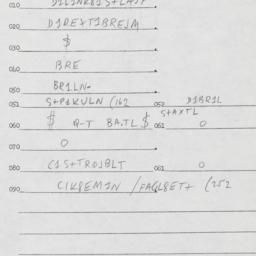 010
020 D1REXT1BREJM
030 $
040 BRE
050 BR1LN-
051 S+P1KULN (162 052 D1BR1L
060 $ Q-T BA.TL $ 061 S+AXTL 0
070 0
080 C1S+TROJBLT 081 0
090 C1K8EM1N /FAGL8ET+ (252